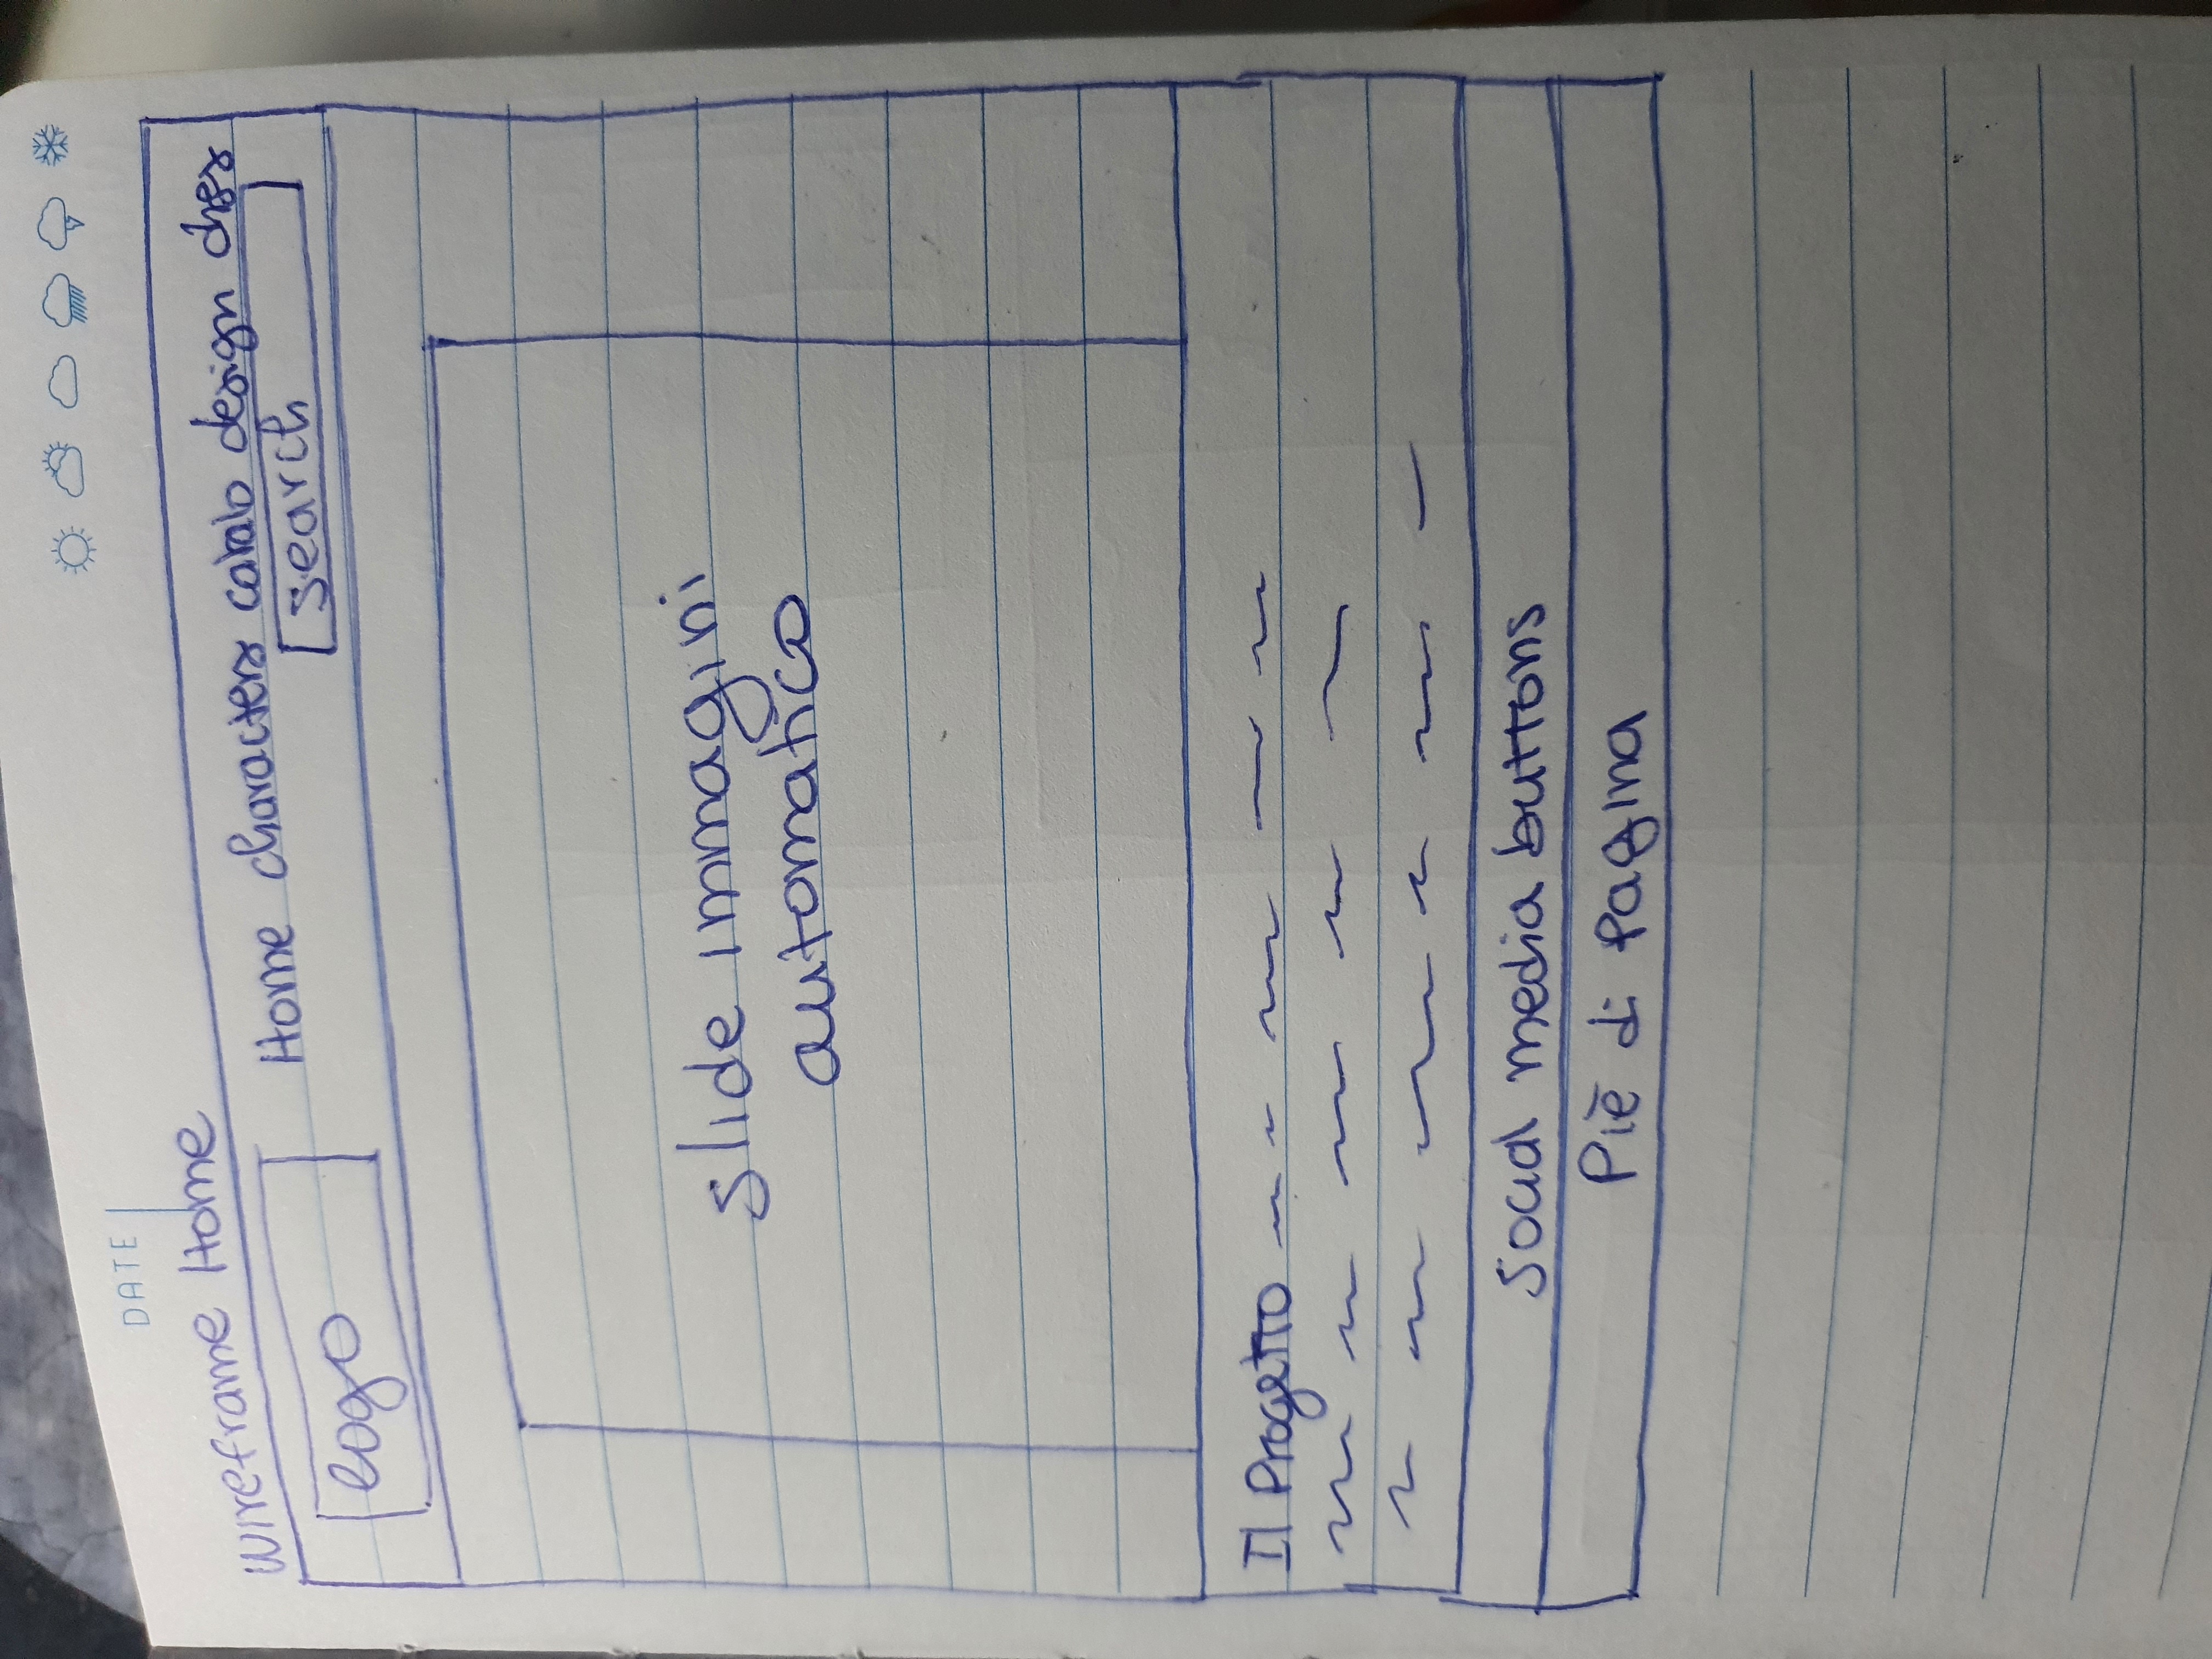 DATE
Wireframe Home
Home characters catalo design
search
logo
slide immagini
automatico
Il Progetto
Social media buttons
Piè di Pagina